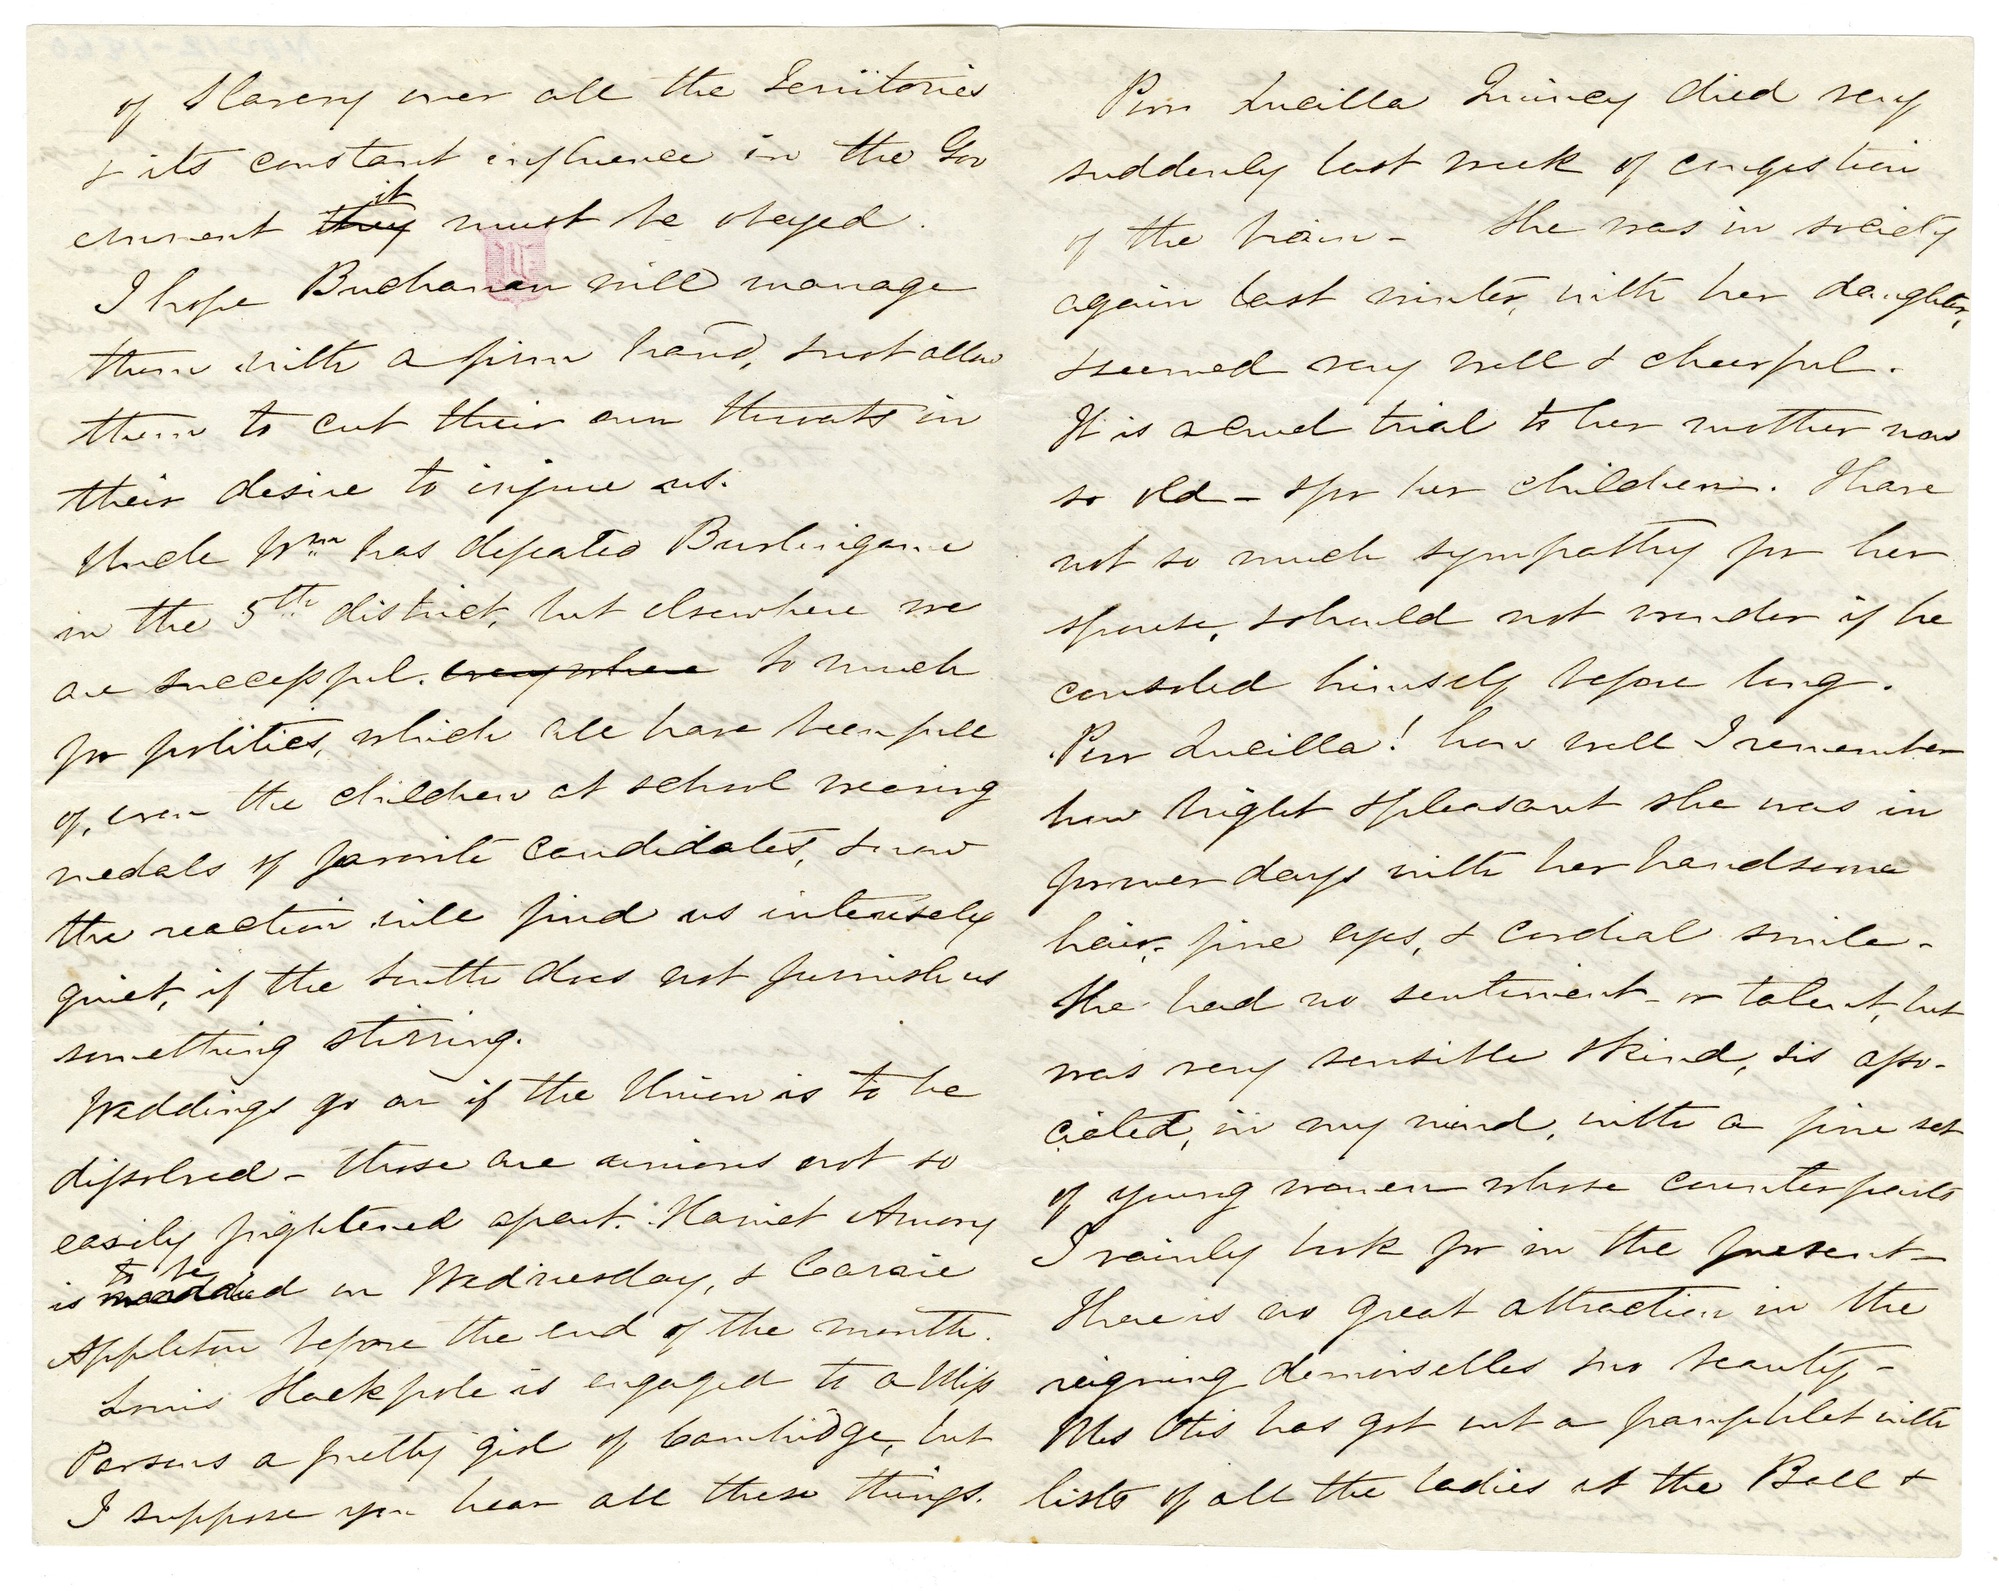 of Slavery over all the Territories
& its constant influence in the Gov
ernment they it must be obeyed.
I hope Buchanan will manage
them with a firm hand, & not allow
them to cut their own throats in
their desire to injure us.
Uncle Wm has defeated Burlingame
in the 5th district, but elsewhere we
are successful. everywhere So much
for politics, which all have been full
of, even the children at school wearing
medals of favorite candidates, & now
the reaction will find us intensely
quiet, if the South does not furnish us
something stirring.
Weddings go on if the Union is to be
dissolved - those are unions not so
easily frightened apart. Harriet Amory
is to be wedded on Wednesday, & Carrie
Appleton before the end of the month.
Louis Stackpole is engaged to a Miss
Parsons a pretty girl of Cambridge, but
I suppose you hear all these things.
Poor Lucilla Quincy died very
suddenly last week of congestion
of the brain - She was in society
again last winter, with her daughter,
& seemed very well & cheerful.
It is a cruel trial to her mother now
so old - & for her children. I have
not so much sympathy for her
spouse, & should not wonder if he
consoled himself before long.
Poor Lucilla! how well I remember
how bright & pleasant she was in
former days with her handsome
hair, fine eyes, & cordial smile -
She had no sentiment - or talent, but
was very sensible & kind, & is asso-
ciated, in my mind, with a fine set
of young women whose counterparts
I vainly look for in the present -
There is no great attraction in the
reigning demoiselles & no beauty, -
Mrs Otis has got out a pamphlet with
lists of all the ladies at the Ball &